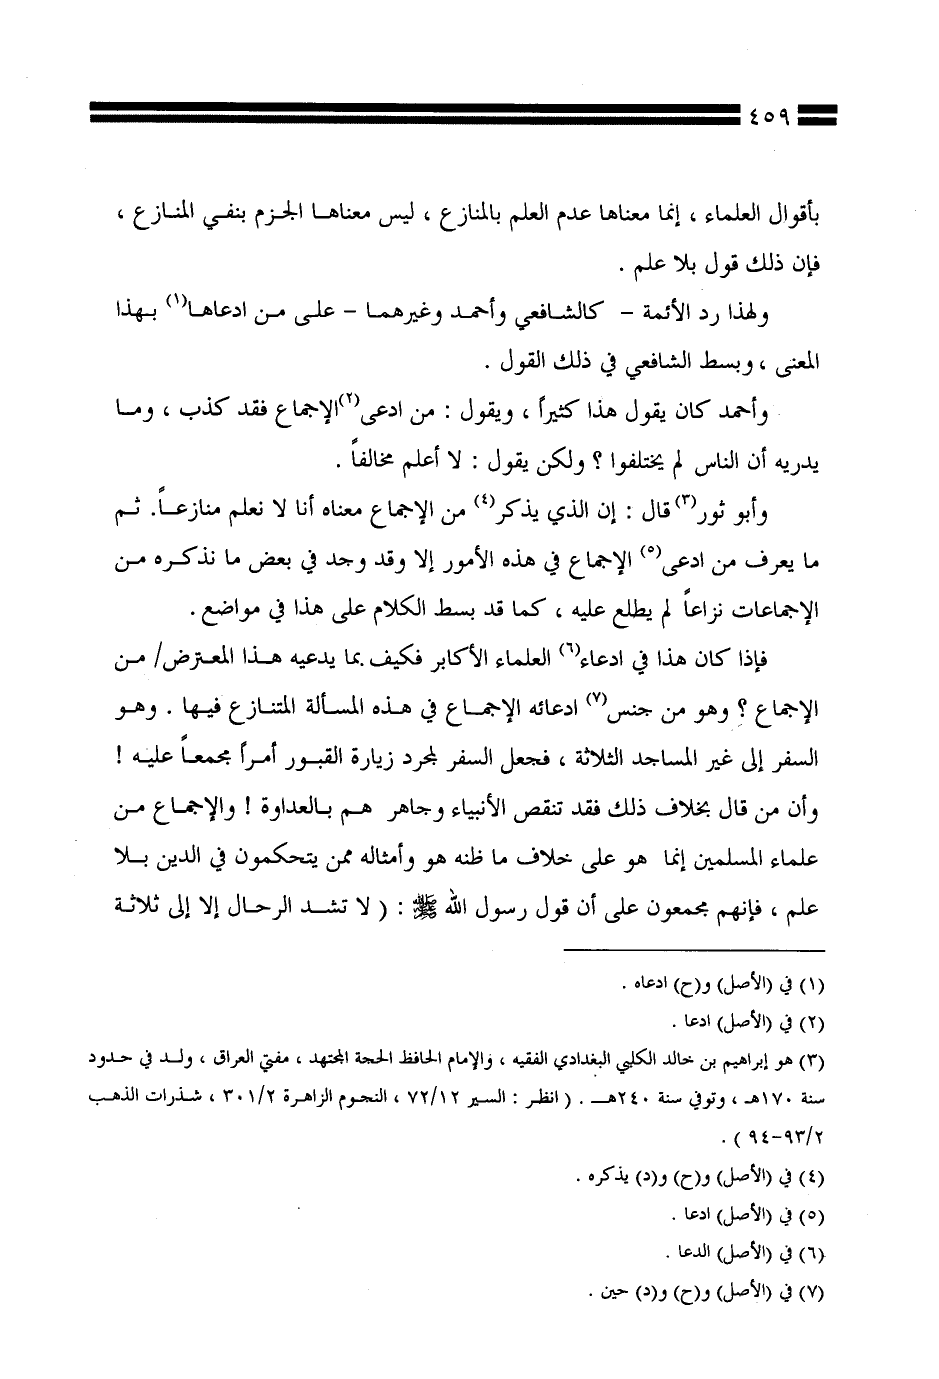 ٤٥٩
بأقوال العلماء ، إنما معناها عدم العلم بالمنازع ، ليس معناها الجزم بنفي المنازع ،
فإن ذلك قول بلا علم .
ولهذا رد الأئمة – كالشافعي وأحمد وغيرهما – على من ادعاها(١) بهذا
المعنى ، وبسط الشافعي في ذلك القول .
وأحمد كان يقول هذا كثيراً ، ويقول : من ادعى(٢) الإجماع فقد كذب ، وما
يدريه أن الناس لم يختلفوا ؟ ولكن يقول : لا أعلم مخالفاً .
وأبو ثور(٣) قال : إن الذي يذكر(٤) من الإجماع معناه أنا لا نعلم منازعاً. ثم
ما يعرف من ادعى(٥) الإجماع في هذه الأمور إلا وقد وجد في بعض ما نذكره من
الإجماعات نزاعاً لم يطلع عليه ، كما قد بسط الكلام على هذا في مواضع .
فإذا كان هذا في ادعاء(٦) العلماء الأكابر فكيف بما يدعيه هذا المعترض/ من
الإجماع ؟ وهو من جنس(٧) ادعائه الإجماع في هذه المسألة المتنازع فيها . وهو
السفر إلى غير المساجد الثلاثة ، فجعل السفر لمجرد زيارة القبور أمراً مجمعاً عليه !
وأن من قال بخلاف ذلك فقد تنقص الأنبياء وجاهر هم بالعداوة ! والإجماع من
علماء المسلمين إنما هو على خلاف ما ظنه هو وأمثاله ممن يتحكمون في الدين بلا
علم ، فإنهم مجمعون على أن قول رسول الله ﷺ : ( لا تشد الرحال إلا إلى ثلاثة
(١) في (الأصل) و(ح) ادعاه .
(٢) في (الأصل) ادعا .
(٣) هو إبراهيم بن خالد الكلبي البغدادي الفقيه ، والإمام الحافظ الحجة المجتهد ، مفتي العراق ، ولد في حدود
سنة ١٧٠هـ ، وتوفي سنة ٢٤٠هـ . ( انظر : السير ٧٢/١٢ ، النجوم الزاهرة ٣٠١/٢ ، شذرات الذهب
٩٣/٢-٩٤ ) .
(٤) في (الأصل) و(ح) و(د) يذكره .
(٥) في (الأصل) ادعا .
(٦) في (الأصل) الدعا .
(٧) في (الأصل) و(ح) و(د) حين .